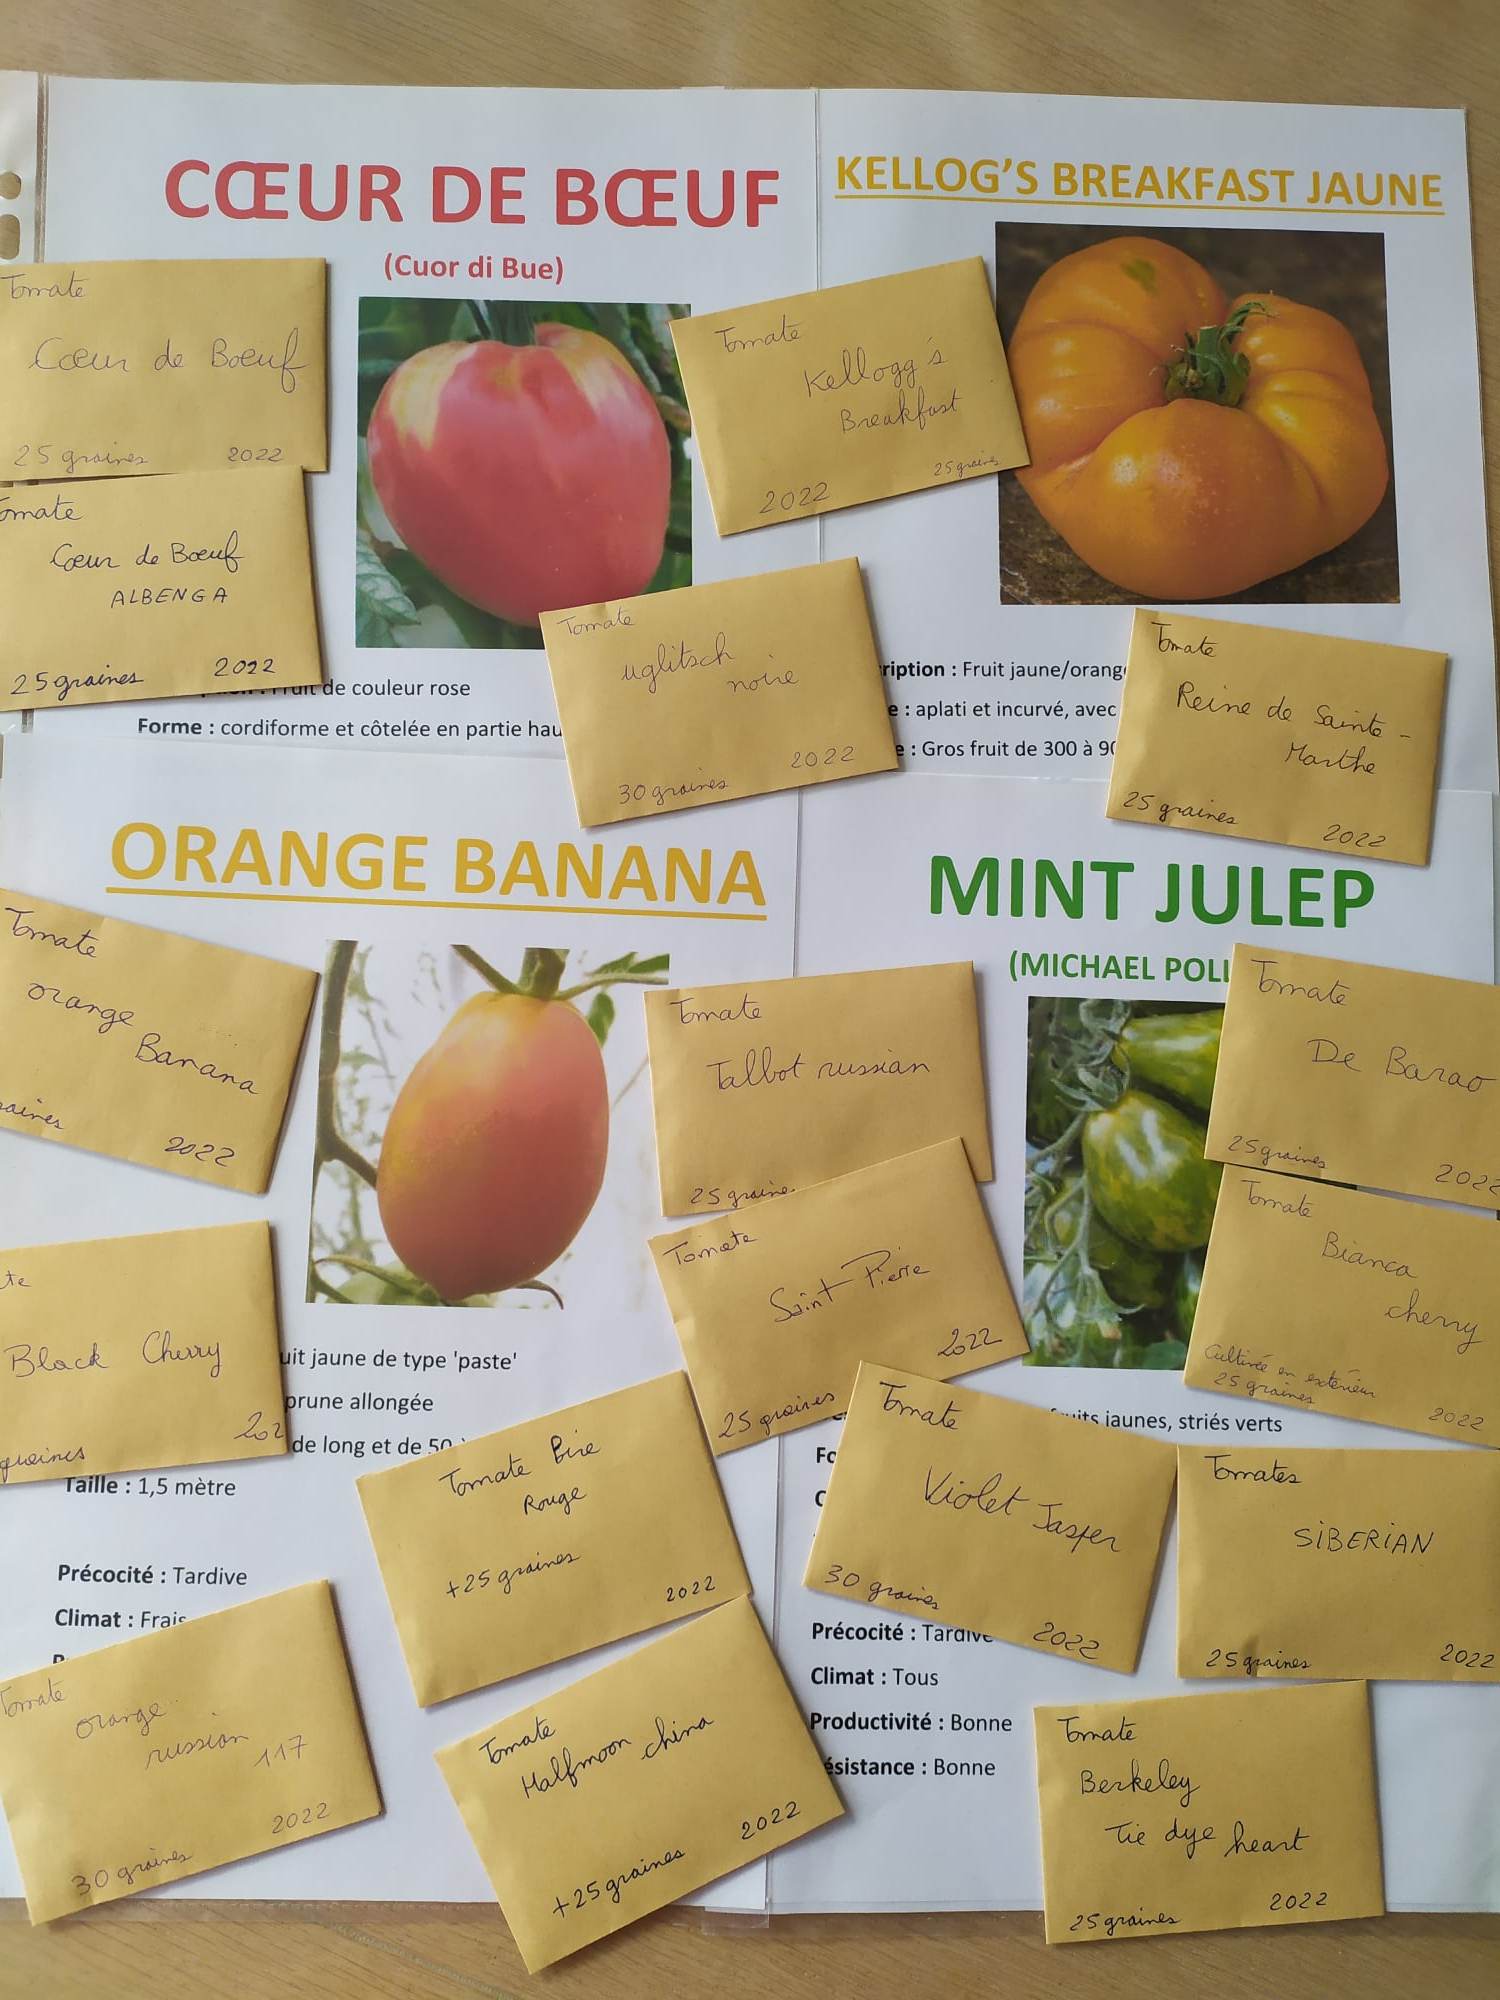 CŒUR DE BŒUF
(Cuor di Bue)
KELLOG'S BREAKFAST JAUNE
Tomate
Cœur de Boeuf
25 graines 2022
Tomate
Kellogg's
Breakfast
25 graines
2022
Tomate
Cœur de Boeuf
ALBENGA
25 graines 2022
Fruit de couleur rose
Forme : cordiforme et côtelée en partie hau
Tomate
uglitsch
noire
30 graines 2022
ription : Fruit jaune/orange
e : aplati et incurvé, avec
e : Gros fruit de 300 à 90
Tomate
Reine de Sainte-
Marthe
25 graines 2022
ORANGE BANANA
MINT JULEP
(MICHAEL POLL
Tomate
orange
Banana
raines 2022
Tomate
Talbot russian
25 graines
Tomate
De Barao
25 graines 2022
Tomate
Saint Pierre
25 graines 2022
Tomate
Bianca
cherry
Cultivée en extérieur
25 graines 2022
te
Black Cherry
graines 202
uit jaune de type 'paste'
prune allongée
de long et de 50
Taille : 1,5 mètre
Précocité : Tardive
Climat : Frais
Tomate Bire
Rouge
+25 graines
2022
fruits jaunes, striés verts
Fo
Tomate
Violet Jasper
30 graines 2022
Tomates
SiBERiAN
25 graines 2022
Précocité : Tardive
Climat : Tous
Productivité : Bonne
ésistance : Bonne
Tomate
orange
russian 117
30 graines 2022
Tomate
Halfmoon china
+25 graines 2022
Tomate
Berkeley
Tie dye heart
25 graines 2022